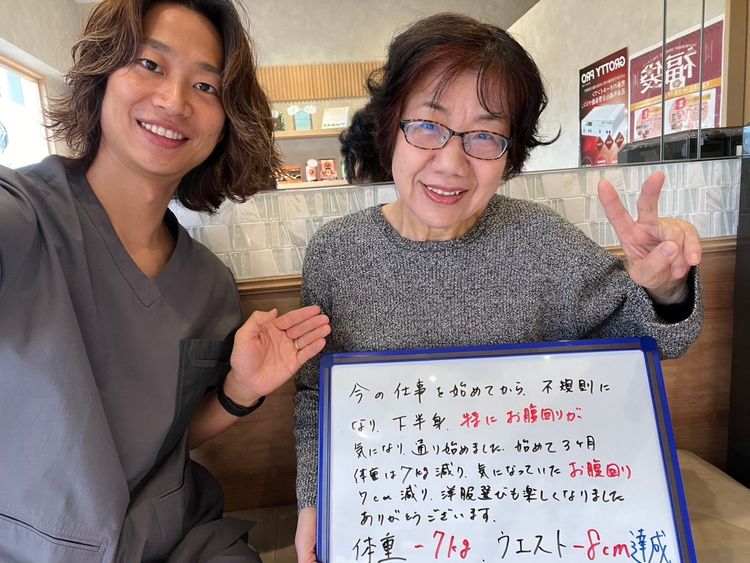 GROTTY PRO
福袋
今の仕事を始めてから、不規則に
なり、下半身、特にお腹回りが
気になり、通り始めました。始めて3ヶ月
体重は7kg減り、気になっていたお腹回り
7cm減り、洋服選びも楽しくなりました
ありがとうございます。
体重 -7kg、ウエスト-8cm達成